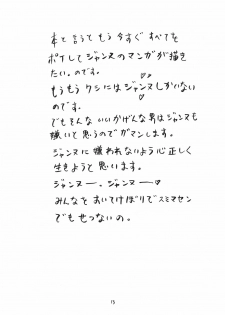 本と言うと もう 今すぐ すべてを
ポイして ジャンヌのマンガが描き
たい。のです。
もうもう ワシにはジャンヌしかいない
のです。
でもそんな いいかげんな男はジャンヌも
嫌いて思うのでガマンします。
ジャンヌに嫌われないよう心正しく
生きようと思います。
ジャンヌー、ジャンヌー♡
みんなをおいてけぼりでスミマセン
でもせつないの。
15